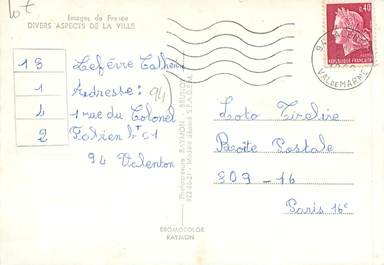 Lot
Images de France
DIVERS ASPECTS DE LA VILLE
18
1
4
2
Lefèvre Catherine
Adresse: 94
1 rue du Colonel
Fabien bt C1
94 Valenton
Photogravure RAYMON - BRUNOY
BROMOCOLOR
RAYMON
0,40
REPUBLIQUE FRANÇAISE
94
VAL DE MARNE
Loto Tirelire
Boîte Postale
309-16
Paris 16e